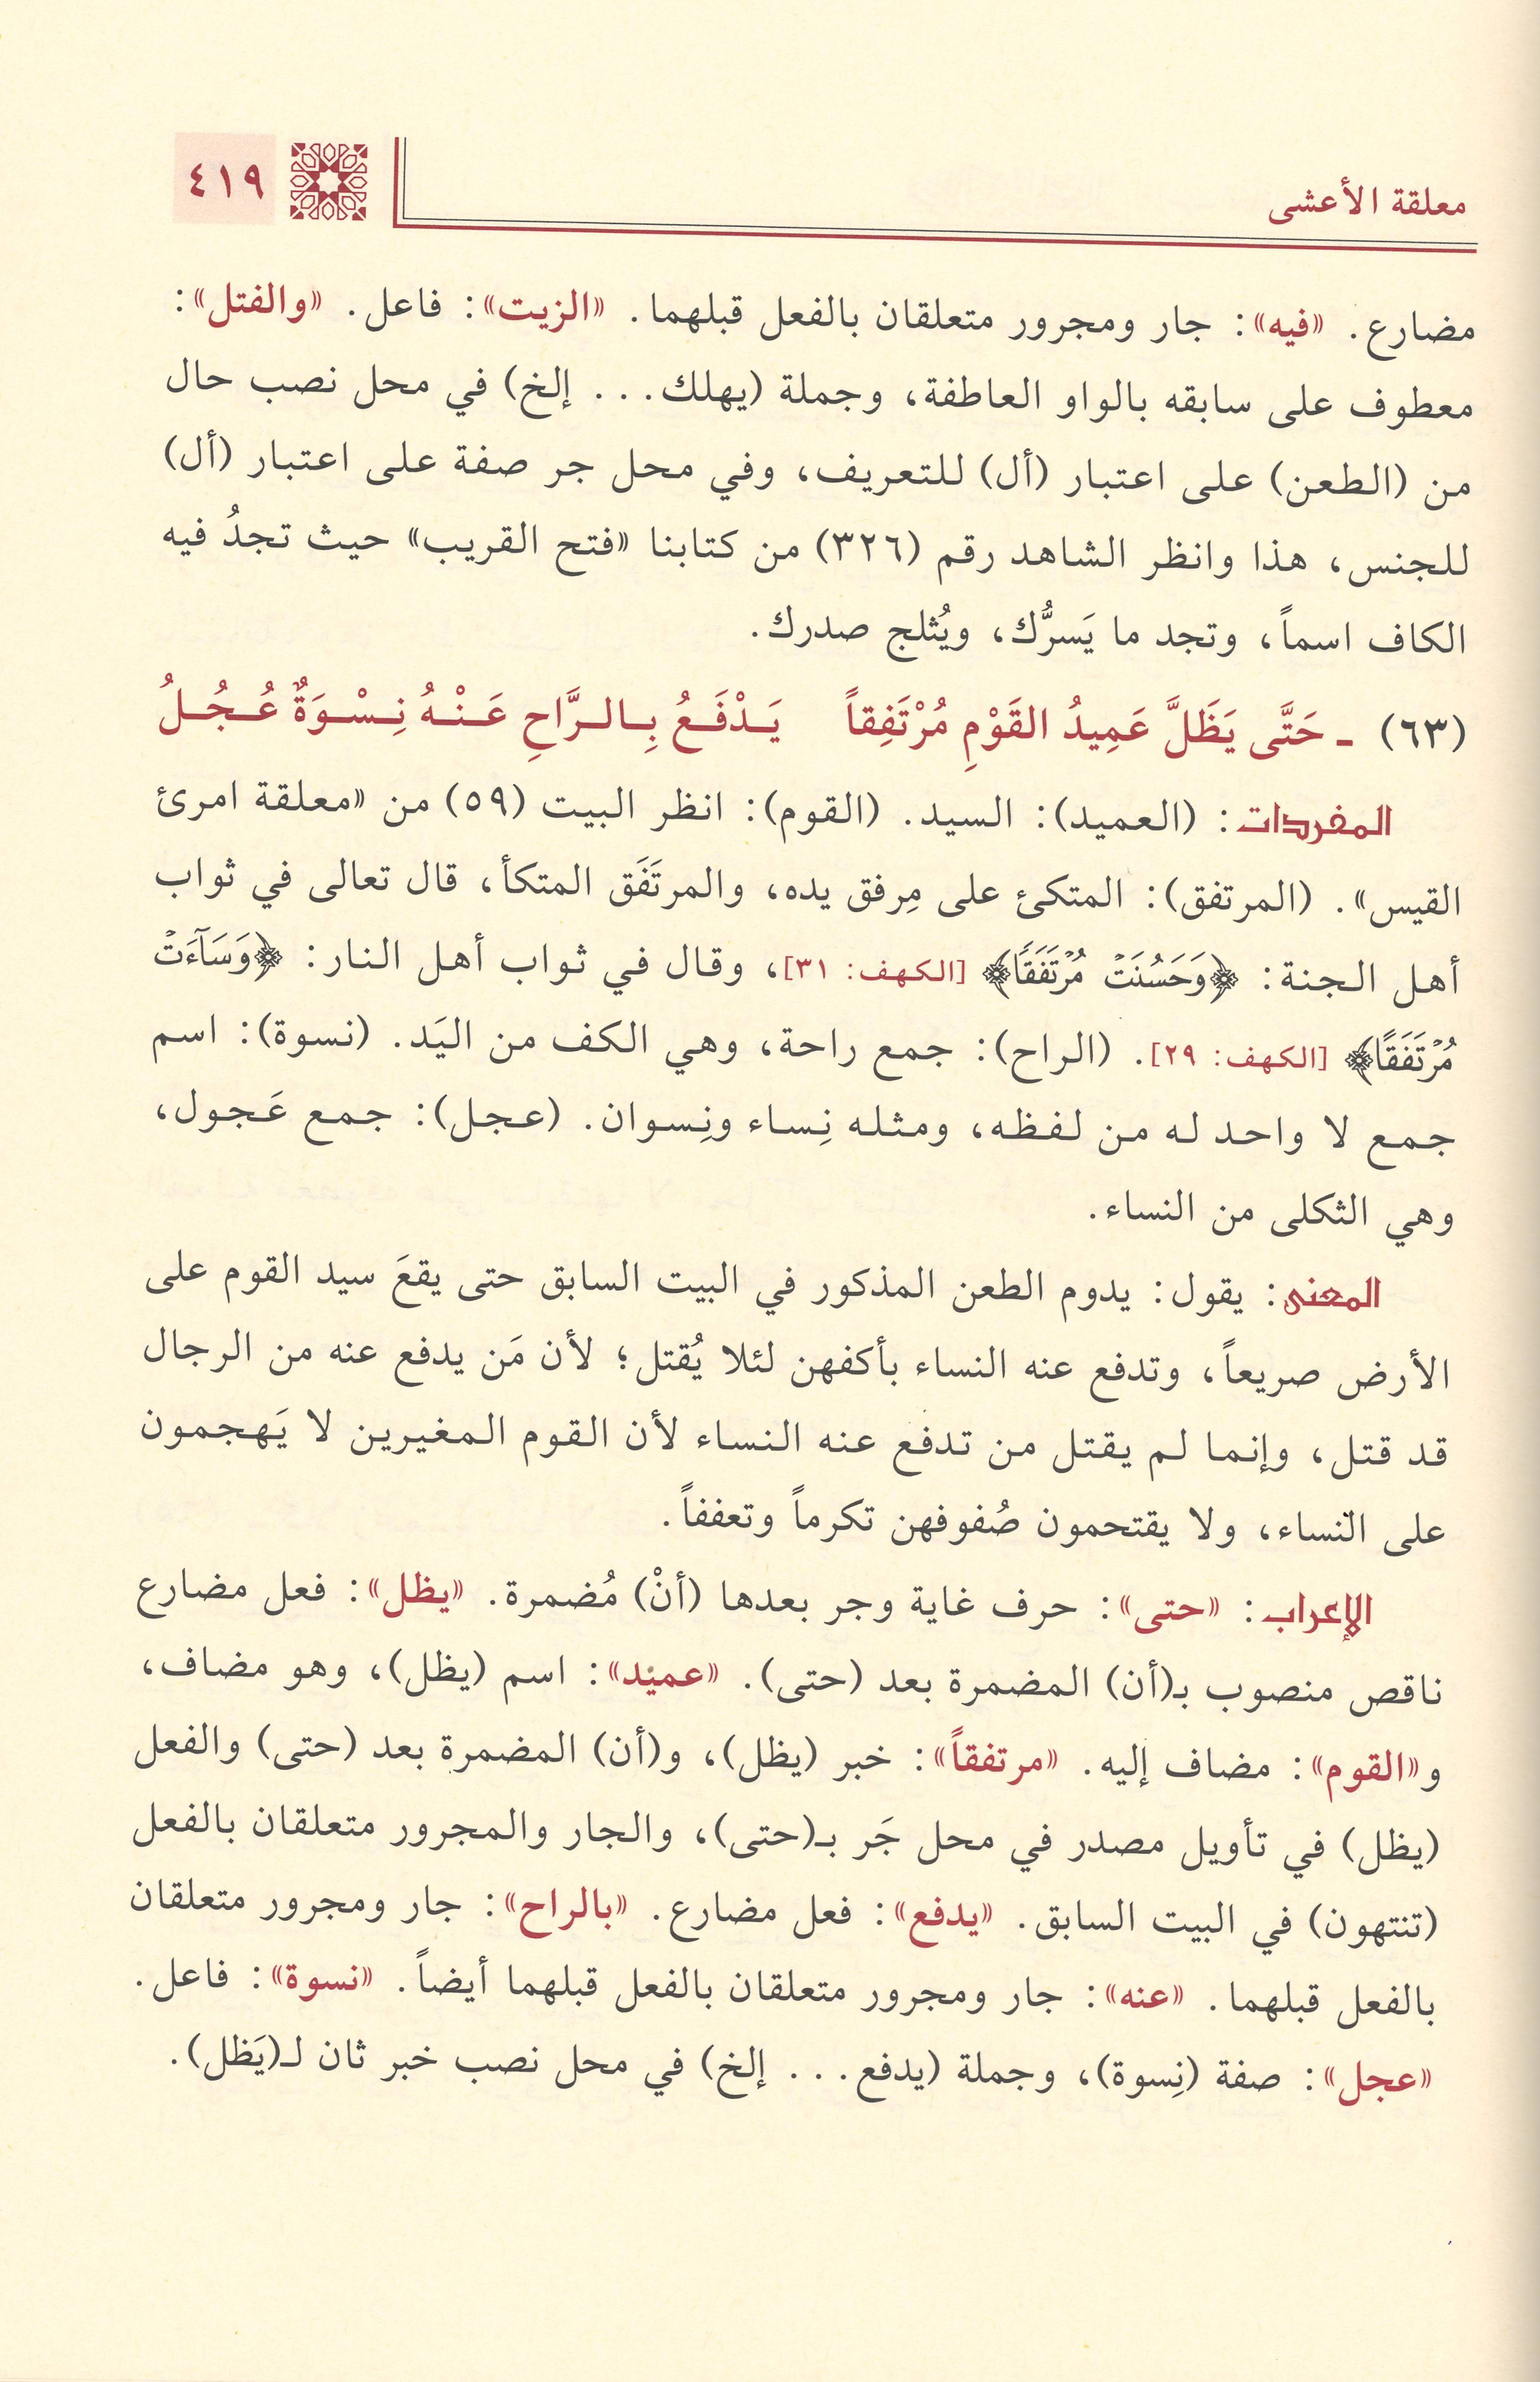 معلقة الأعشى
٤١٩
مضارع. «فيه»: جار ومجرور متعلقان بالفعل قبلهما. «الزيت»: فاعل. «والفتل»:
معطوف على سابقه بالواو العاطفة، وجملة (يهلك... إلخ) في محل نصب حال
من (الطعن) على اعتبار (أل) للتعريف، وفي محل جر صفة على اعتبار (أل)
للجنس، هذا وانظر الشاهد رقم (٣٢٦) من كتابنا «فتح القريب» حيث تجدُ فيه
الكاف اسماً، وتجد ما يَسرُّك، ويُثلج صدرك.
(٦٣) ـ حَتَّى يَظَلَّ عَمِيدُ القَوْمِ مُرْتَفِقاً يَدْفَعُ بِالرَّاحِ عَنْهُ نِسْوَةٌ عُجُلُ
المفردات: (العميد): السيد. (القوم): انظر البيت (٥٩) من «معلقة امرئ
القيس». (المرتفق): المتكئ على مِرفق يده، والمرتَفَق المتكأ، قال تعالى في ثواب
أهل الجنة: ﴿وَحَسُنَتْ مُرْتَفَقًا﴾ [الكهف: ٣١]، وقال في ثواب أهل النار: ﴿وَسَآءَتْ
مُرْتَفَقًا﴾ [الكهف: ٢٩]. (الراح): جمع راحة، وهي الكف من اليَد. (نسوة): اسم
جمع لا واحد له من لفظه، ومثله نِساء ونِسوان. (عجل): جمع عَجول،
وهي الثكلى من النساء.
المعنى: يقول: يدوم الطعن المذكور في البيت السابق حتى يقعَ سيد القوم على
الأرض صريعاً، وتدفع عنه النساء بأكفهن لئلا يُقتل؛ لأن مَن يدفع عنه من الرجال
قد قتل، وإنما لم يقتل من تدفع عنه النساء لأن القوم المغيرين لا يَهجمون
على النساء، ولا يقتحمون صُفوفهن تكرماً وتعففاً.
الإعراب: «حتى»: حرف غاية وجر بعدها (أنْ) مُضمرة. «يظل»: فعل مضارع
ناقص منصوب بـ(أن) المضمرة بعد (حتى). «عميد»: اسم (يظل)، وهو مضاف،
و«القوم»: مضاف إليه. «مرتفقاً»: خبر (يظل)، و(أن) المضمرة بعد (حتى) والفعل
(يظل) في تأويل مصدر في محل جَر بـ(حتى)، والجار والمجرور متعلقان بالفعل
(تنتهون) في البيت السابق. «يدفع»: فعل مضارع. «بالراح»: جار ومجرور متعلقان
بالفعل قبلهما. «عنه»: جار ومجرور متعلقان بالفعل قبلهما أيضاً. «نسوة»: فاعل.
«عجل»: صفة (نِسوة)، وجملة (يدفع... إلخ) في محل نصب خبر ثان لـ(يَظل).